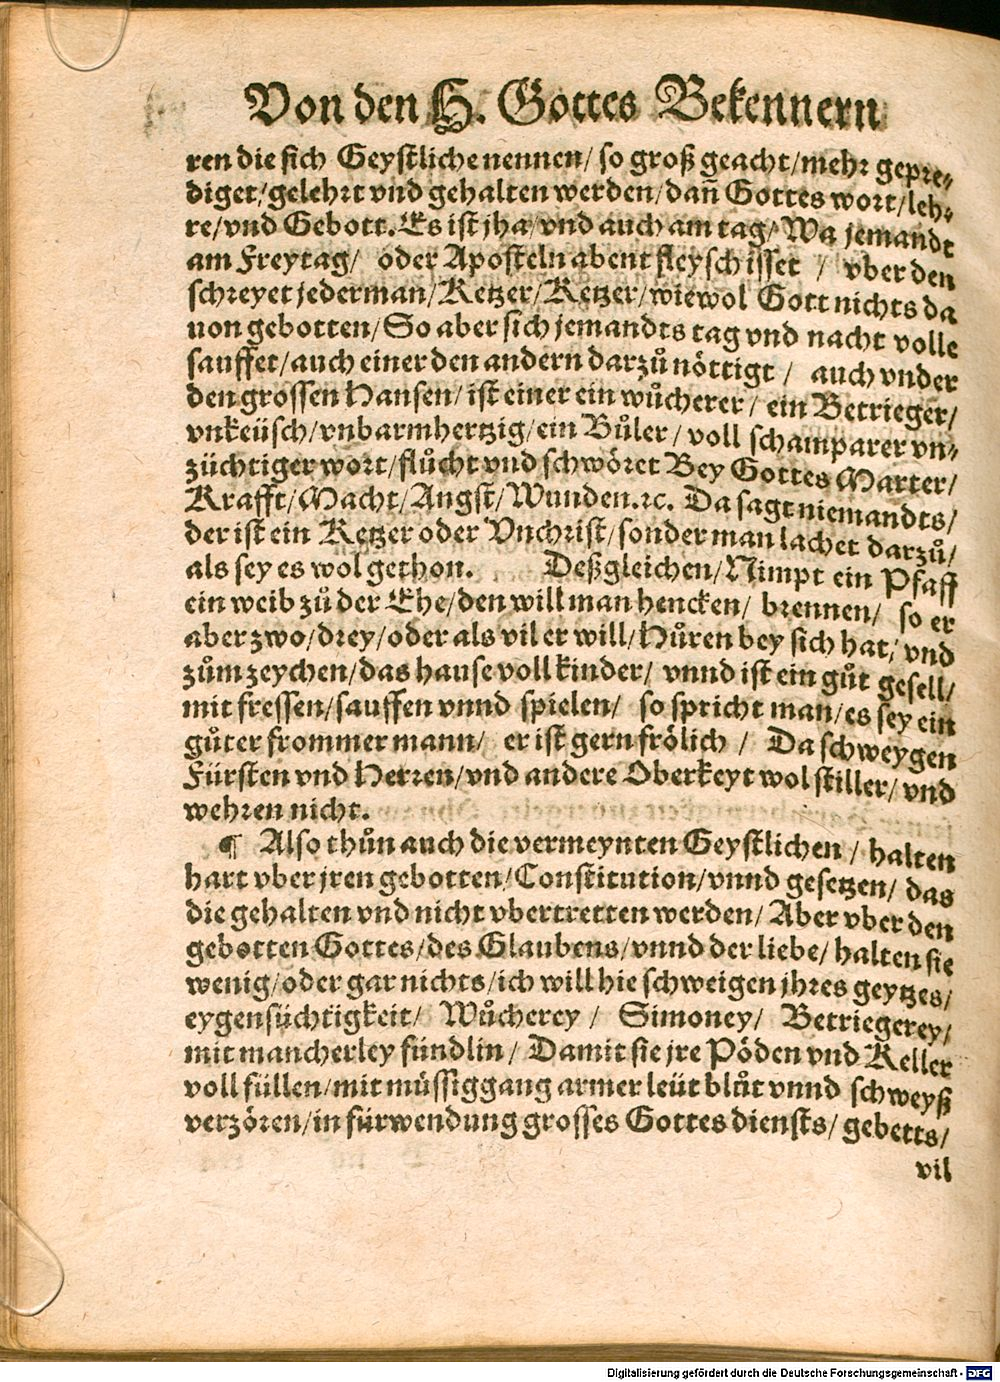 Von den H. Gottes Bekennern
ren die sich Geystliche nennen/ so groß geacht/mehr gepre-
diget/gelehrt vnd gehalten werden/dañ Gottes wort/leh-
re/vnd Gebott. Es ist jha/vnd auch am tag/Wa jemandt
am Freytag/ oder Aposteln abent fleysch isset / vber den
schreyet jederman/Ketzer/Ketzer/wiewol Gott nichts da
uon gebotten/So aber sich jemandts tag vnd nacht volle
sauffet/auch einer den andern darzů nöttigt / auch vnder
den grossen Hansen/ist einer ein wůcherer/ ein Betrieger/
vnkeüsch/vnbarmhertzig/ein Bůler/voll schamparer vn-
züchtiger wort/flůcht vnd schwöret Bey Gottes Marter/
Krafft/Macht/Angst/Wunden.ꝛc. Da sagt niemandts/
der ist ein Ketzer oder Vnchrist/sonder man lachet darzů/
als sey es wol gethon. Deßgleichen/Nimpt ein Pfaff
ein weib zů der Ehe/den will man hencken/ brennen/ so er
aber zwo/drey/oder als vil er will/Hůren bey sich hat/vnd
zům zeychen/das hause voll kinder/ vnnd ist ein gůt gesell/
mit fressen/sauffen vnnd spielen/ so spricht man/es sey ein
gůter frommer mann/ er ist gern frölich / Da schweygen
Fürsten vnd Herren/vnd andere Oberkeyt wol stiller/vnd
wehren nicht.
¶ Also thůn auch die vermeynten Geystlichen / halten
hart vber jren gebotten/Constitution/vnnd gesetzen/ das
die gehalten vnd nicht vbertretten werden/Aber vber den
gebotten Gottes/des Glaubens/vnnd der liebe/halten sie
wenig/oder gar nichts/ich will hie schweigen jhres geytzes/
eygensüchtigkeit/ Wůcherey / Simoney/ Betriegerey/
mit mancherley fündlin / Damit sie jre Pöden vnd Keller
voll füllen/mit müssiggang armer leüt blůt vnnd schweyß
verzören/in fürwendung grosses Gottes diensts/gebetts/
vil
Digitalisierung gefördert durch die Deutsche Forschungsgemeinschaft - DFG